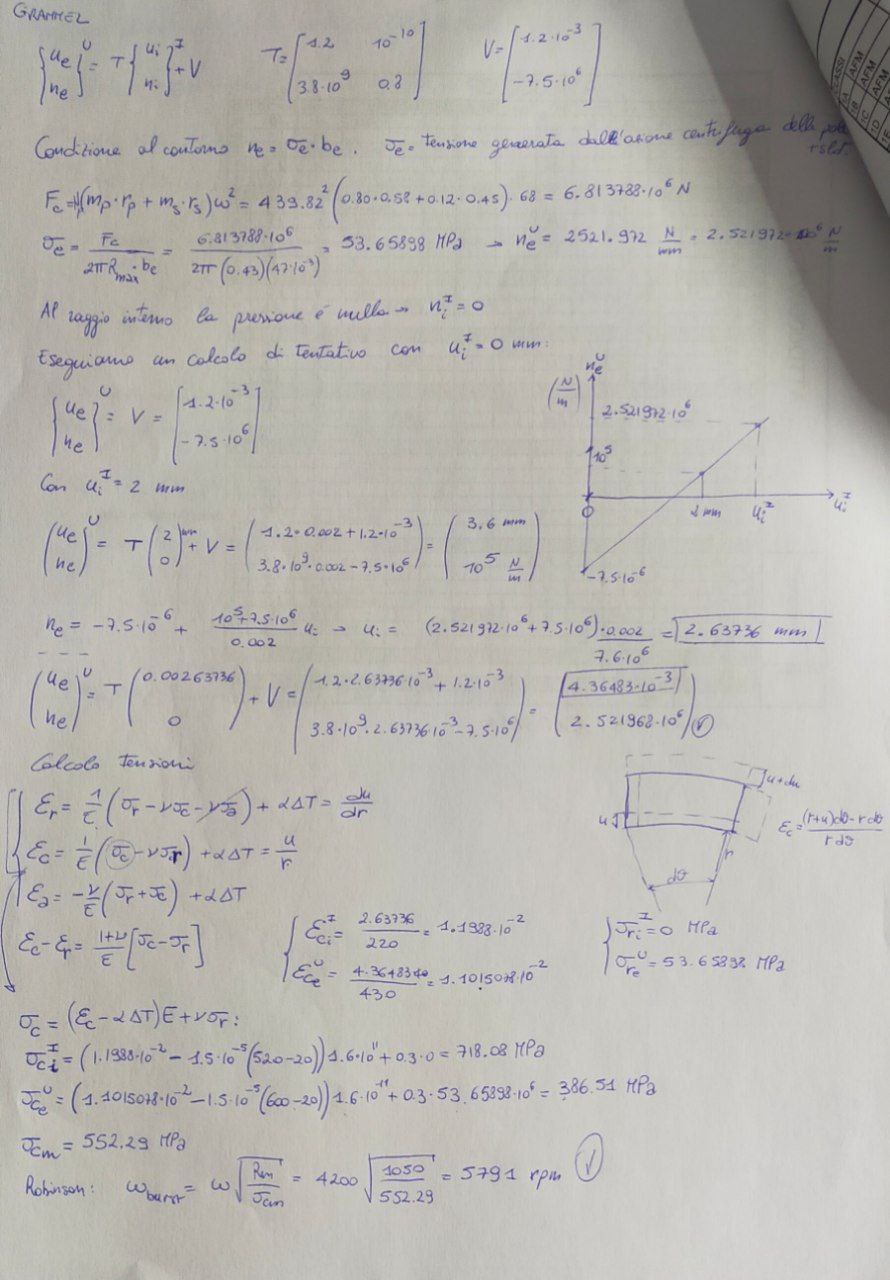 GRAMMEL
{ue ne}^U = T {ui ni}^I + V    T = [1.2  10^-10 ; 3.8·10^9  0.8]    V = [1.2·10^-3 ; -7.5·10^6]
Condizione al contorno ne = σe·be. σe = tensione generata dall'azione centrifuga delle pale + slot.
Fc = (mp·rp + ms·rs)ω² = 439.82² (0.80·0.58 + 0.12·0.45)·68 = 6.813788·10^6 N
σe = Fc / 2πRmax·be = 6.813788·10^6 / 2π(0.43)(47·10^-3) = 53.65898 MPa → ne^U = 2521.972 N/mm = 2.521972·10^6 N/m
Al raggio interno la pressione é nulla → ni^I = 0
Eseguiamo un calcolo di tentativo con ui^I = 0 mm:
{ue ne}^U = V = [1.2·10^-3 ; -7.5·10^6]
Con ui^I = 2 mm
(ue ne)^U = T (2 0)^mm + V = (1.2·0.002 + 1.2·10^-3 ; 3.8·10^9·0.002 - 7.5·10^6) = (3.6 mm ; 10^5 N/m)
ne^U
(N/m)
2.521972·10^6
10^5
0
2 mm
ui^I
ui^I
-7.5·10^-6
ne = -7.5·10^-6 + 10^5+7.5·10^6 / 0.002 ui → ui = (2.521972·10^6 + 7.5·10^6)·0.002 / 7.6·10^6 = 2.63736 mm
(ue ne)^U = T (0.00263736 ; 0) + V = (1.2·2.63736·10^-3 + 1.2·10^-3 ; 3.8·10^9·2.63736·10^-3 - 7.5·10^6) = (4.36483·10^-3 ; 2.521968·10^6) ✓
Calcolo tensioni
εr = 1/E (σr - νσc - νσa) + αΔT = du/dr
εc = 1/E (σc - νσr) + αΔT = u/r
εa = -ν/E (σr + σc) + αΔT
εc - εr = 1+ν/E [σc - σr]
u+du
u
r
dθ
εc = (r+u)dθ - rdθ / rdθ
εci^I = 2.63736/220 = 1.1988·10^-2
εce^U = 4.3648340/430 = 1.1015078·10^-2
σri^I = 0 MPa
σre^U = 53.65898 MPa
σc = (εc - αΔT)E + νσr:
σci^I = (1.1988·10^-2 - 1.5·10^-5(520-20))1.6·10^11 + 0.3·0 = 718.08 MPa
σce^U = (1.1015078·10^-2 - 1.5·10^-5(600-20))1.6·10^-11 + 0.3·53.65898·10^6 = 386.51 MPa
σcm = 552.29 MPa
Robinson: ωburst = ω √(Rm/σcm) = 4200 √(1050/552.29) = 5791 rpm ✓
CLASSI
AFM
AFM
AFM
1B
1C
1D